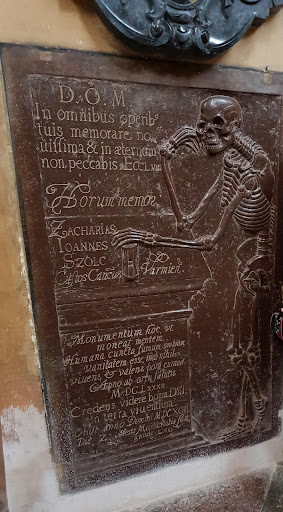 D. O. M
In omnibus operib⁹
tuis memorare no
uissima & in æternum
non peccabis. Eccl. VII
Horum memor
ZACHARIAS
IOANNES
SZOLC
Varmien:
Monumentum hoc, vt
moneat mentem,
Humana cuncta fumum,
vanitatem esse, imo nihil
viuens & valens poni curauit
Anno ab orbe salutis
M.DC.LXXXII
Credens videre bona Dñi
in terra viuentium
Obijt anno Domini MDCXCII
Die